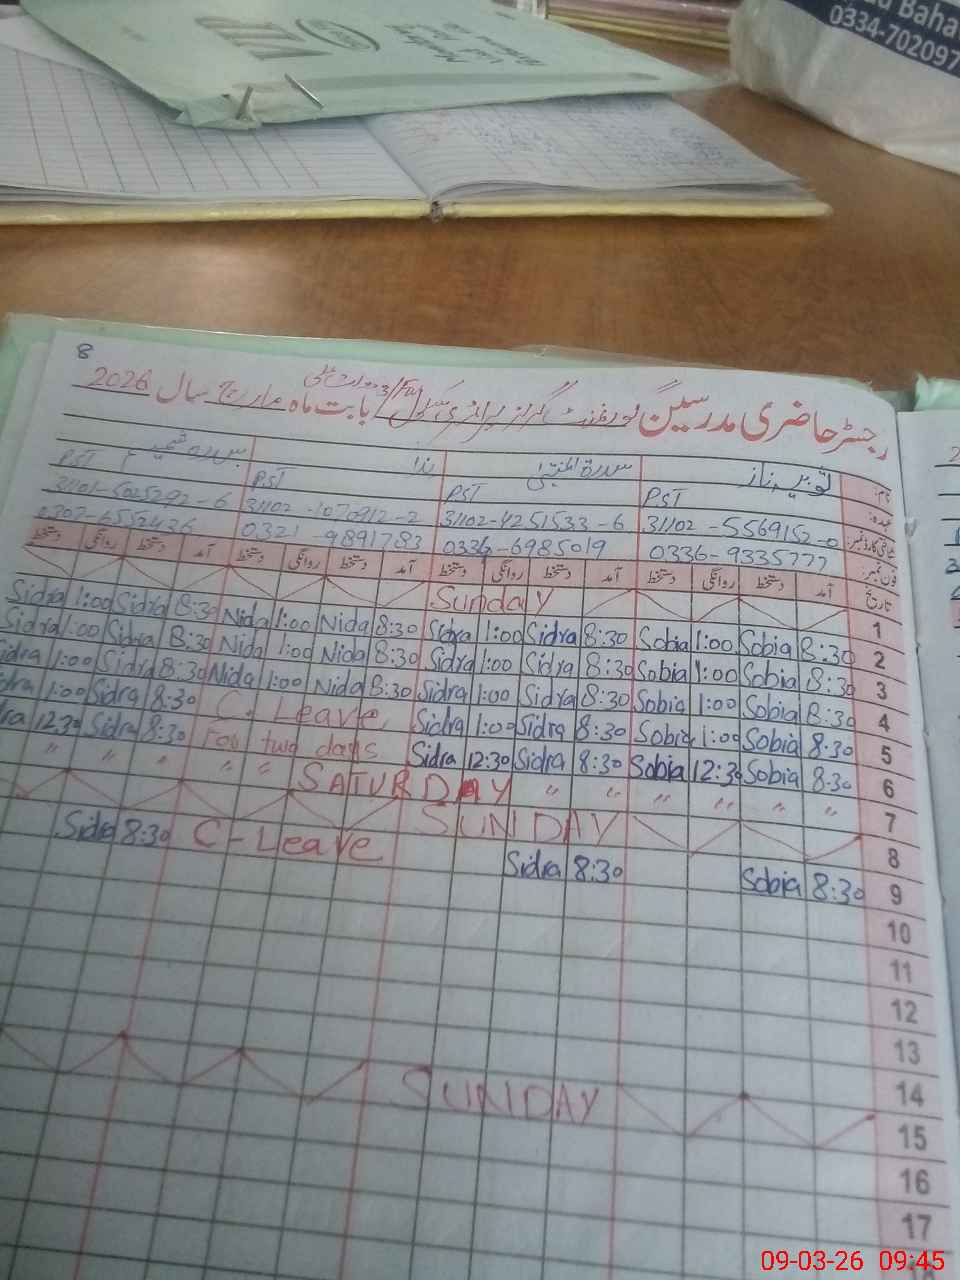 VIR
Baha
0334-702097
8
رجسٹر حاضری مدرسین گورنمنٹ گرلز پرائمری سکول بابت ماہ مارچ سال 2026
نام:
عہدہ: PST PST PST PST
شناختی کارڈ نمبر: 31102-5569152-0 31102-4251533-6 31102-1070912-2 31101-5025292-6
فون نمبر: 0336-9335777 0336-6985019 0321-9891783 0307-6552436
تاریخ آمد دستخط روانگی دستخط آمد دستخط روانگی دستخط آمد دستخط روانگی دستخط آمد دستخط روانگی دستخط
1 Sunday
2 8:30 Sobia 1:00 Sobia 8:30 Sidra 1:00 Sidra 8:30 Nida 1:00 Nida 8:30 Sidra 1:00 Sidra
3 8:30 Sobia 1:00 Sobia 8:30 Sidra 1:00 Sidra 8:30 Nida 1:00 Nida 8:30 Sidra 1:00 Sidra
4 8:30 Sobia 1:00 Sobia 8:30 Sidra 1:00 Sidra 8:30 Nida 1:00 Nida 8:30 Sidra 1:00 Sidra
5 8:30 Sobia 1:00 Sobia 8:30 Sidra 1:00 Sidra C. Leave 8:30 Sidra 1:00
6 8:30 Sobia 12:30 Sobia 8:30 Sidra 12:30 Sidra For two days 8:30 Sidra 12:30
7 " " " " " " SATURDAY " " " " "
8 SUNDAY
9 8:30 Sobia 8:30 Sidra C-Leave 8:30 Sidra
10
11
12
13
14
15 SUNDAY
16
17
09-03-26 09:45